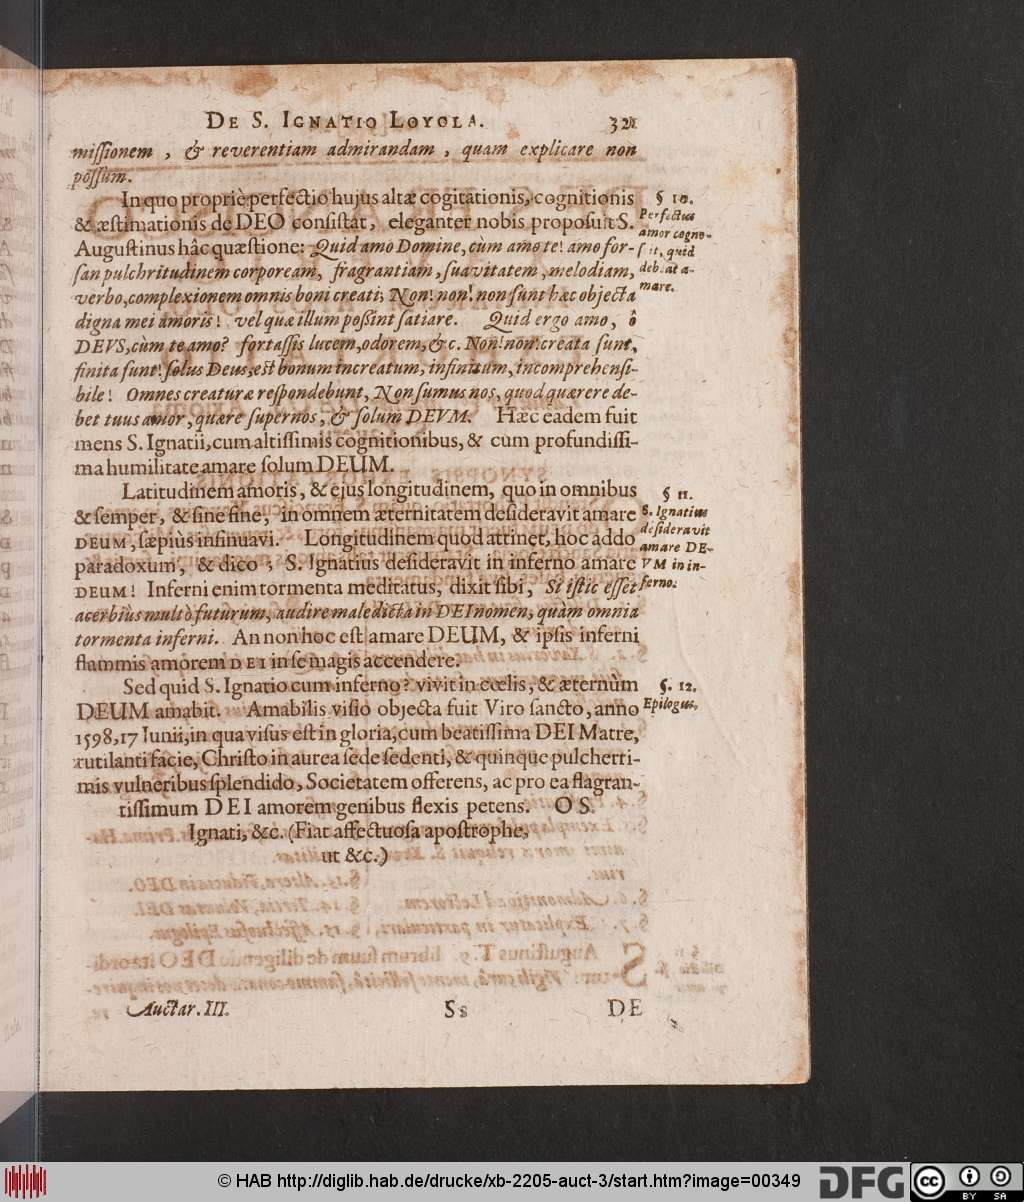 DE S. IGNATIO LOYOLA. 321
missionem, & reverentiam admirandam, quam explicare non
possum.
In quo propriè perfectio hujus altæ cogitationis, cognitionis
& æstimationis de DEO consistat, eleganter nobis proposuit S.
Augustinus hâc quæstione: Quid amo Domine, cùm amo te! amo for-
san pulchritudinem corpoream, fragrantiam, suavitatem, melodiam,
verbo, complexionem omnis boni creati; Non! non! non sunt hæc objecta
digna mei amoris! vel quæ illum possint satiare. Quid ergo amo, ô
DEVS, cùm te amo? fortassis lucem, odorem, &c. Non! non! creata sunt,
finita sunt! solus Deus, est bonum increatum, infinitum, incomprehensi-
bile! Omnes creaturæ respondebunt, Non sumus nos, quod quærere de-
bet tuus amor, quære supernos, & solum DEVM. Hæc eadem fuit
mens S. Ignatii, cum altissimis cognitionibus, & cum profundissi-
ma humilitate amare solum DEUM.
§ 10.
Perfectus
amor cogno-
scit, quid
debeat a-
mare.
Latitudinem amoris, & ejus longitudinem, quo in omnibus
& semper, & sine fine, in omnem æternitatem desideravit amare
DEUM, sæpiùs insinuavi. Longitudinem quod attinet, hoc addo
paradoxum, & dico; S. Ignatius desideravit in inferno amare
DEUM! Inferni enim tormenta meditatus, dixit sibi, Si istic esset
acerbiùs multò futurum, audire maledicta in DEI nomen, quàm omnia
tormenta inferni. An non hoc est amare DEUM, & ipsis inferni
flammis amorem DEI in se magis accendere.
§ 11.
S. Ignatius
desideravit
amare DE-
VM in in-
ferno.
Sed quid S. Ignatio cum inferno? vivit in cœlis, & æternùm
DEUM amabit. Amabilis visio objecta fuit Viro sancto, anno
1598, 17 Iunii, in qua visus est in gloria, cum beatissima DEI Matre,
rutilanti facie, Christo in aurea sede sedenti, & quinque pulcherri-
mis vulneribus splendido, Societatem offerens, ac pro ea flagran-
tissimum DEI amorem genibus flexis petens. O S.
Ignati, &c. (Fiat affectuosa apostrophe,
ut &c.)
§. 12.
Epilogus.
Auctar. III. Ss DE
© HAB http://diglib.hab.de/drucke/xb-2205-auct-3/start.htm?image=00349
DFG
cc
BY SA